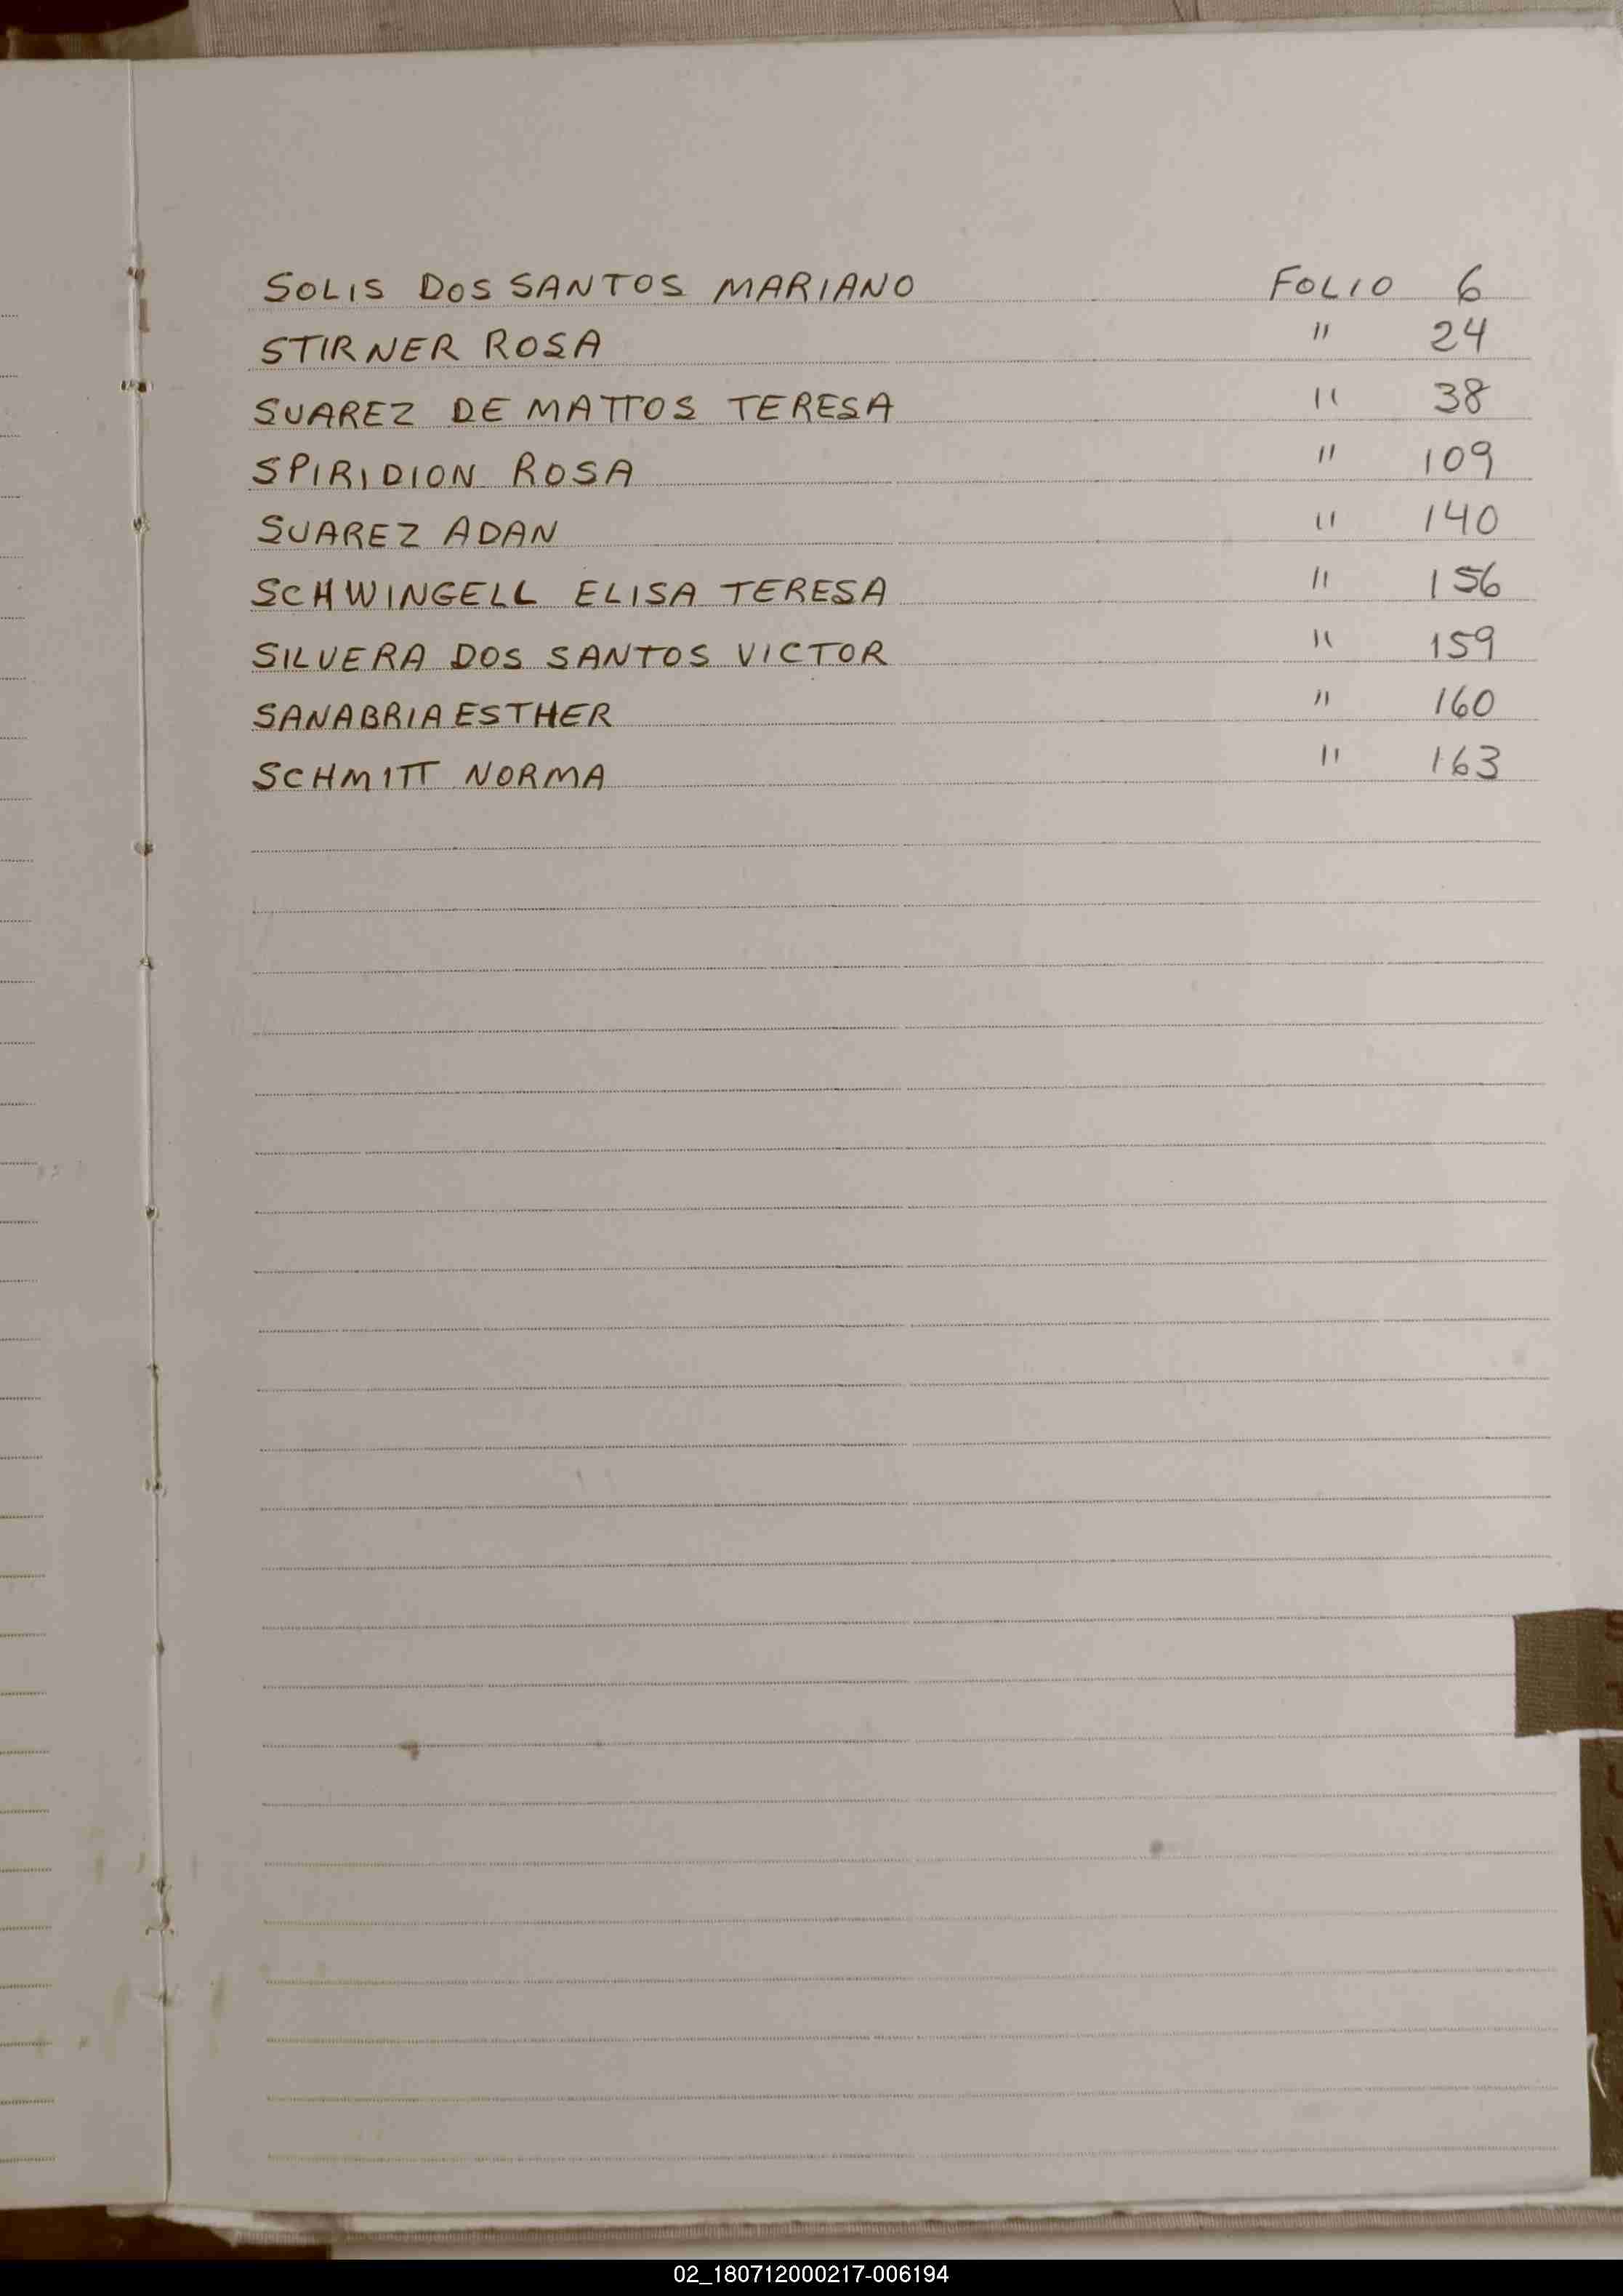 SOLIS DOS SANTOS MARIANO FOLIO 6
STIRNER ROSA " 24
SUAREZ DE MATTOS TERESA " 38
SPIRIDION ROSA " 109
SUAREZ ADAN " 140
SCHWINGELL ELISA TERESA " 156
SILVERA DOS SANTOS VICTOR " 159
SANABRIA ESTHER " 160
SCHMITT NORMA " 163
02_180712000217-006194